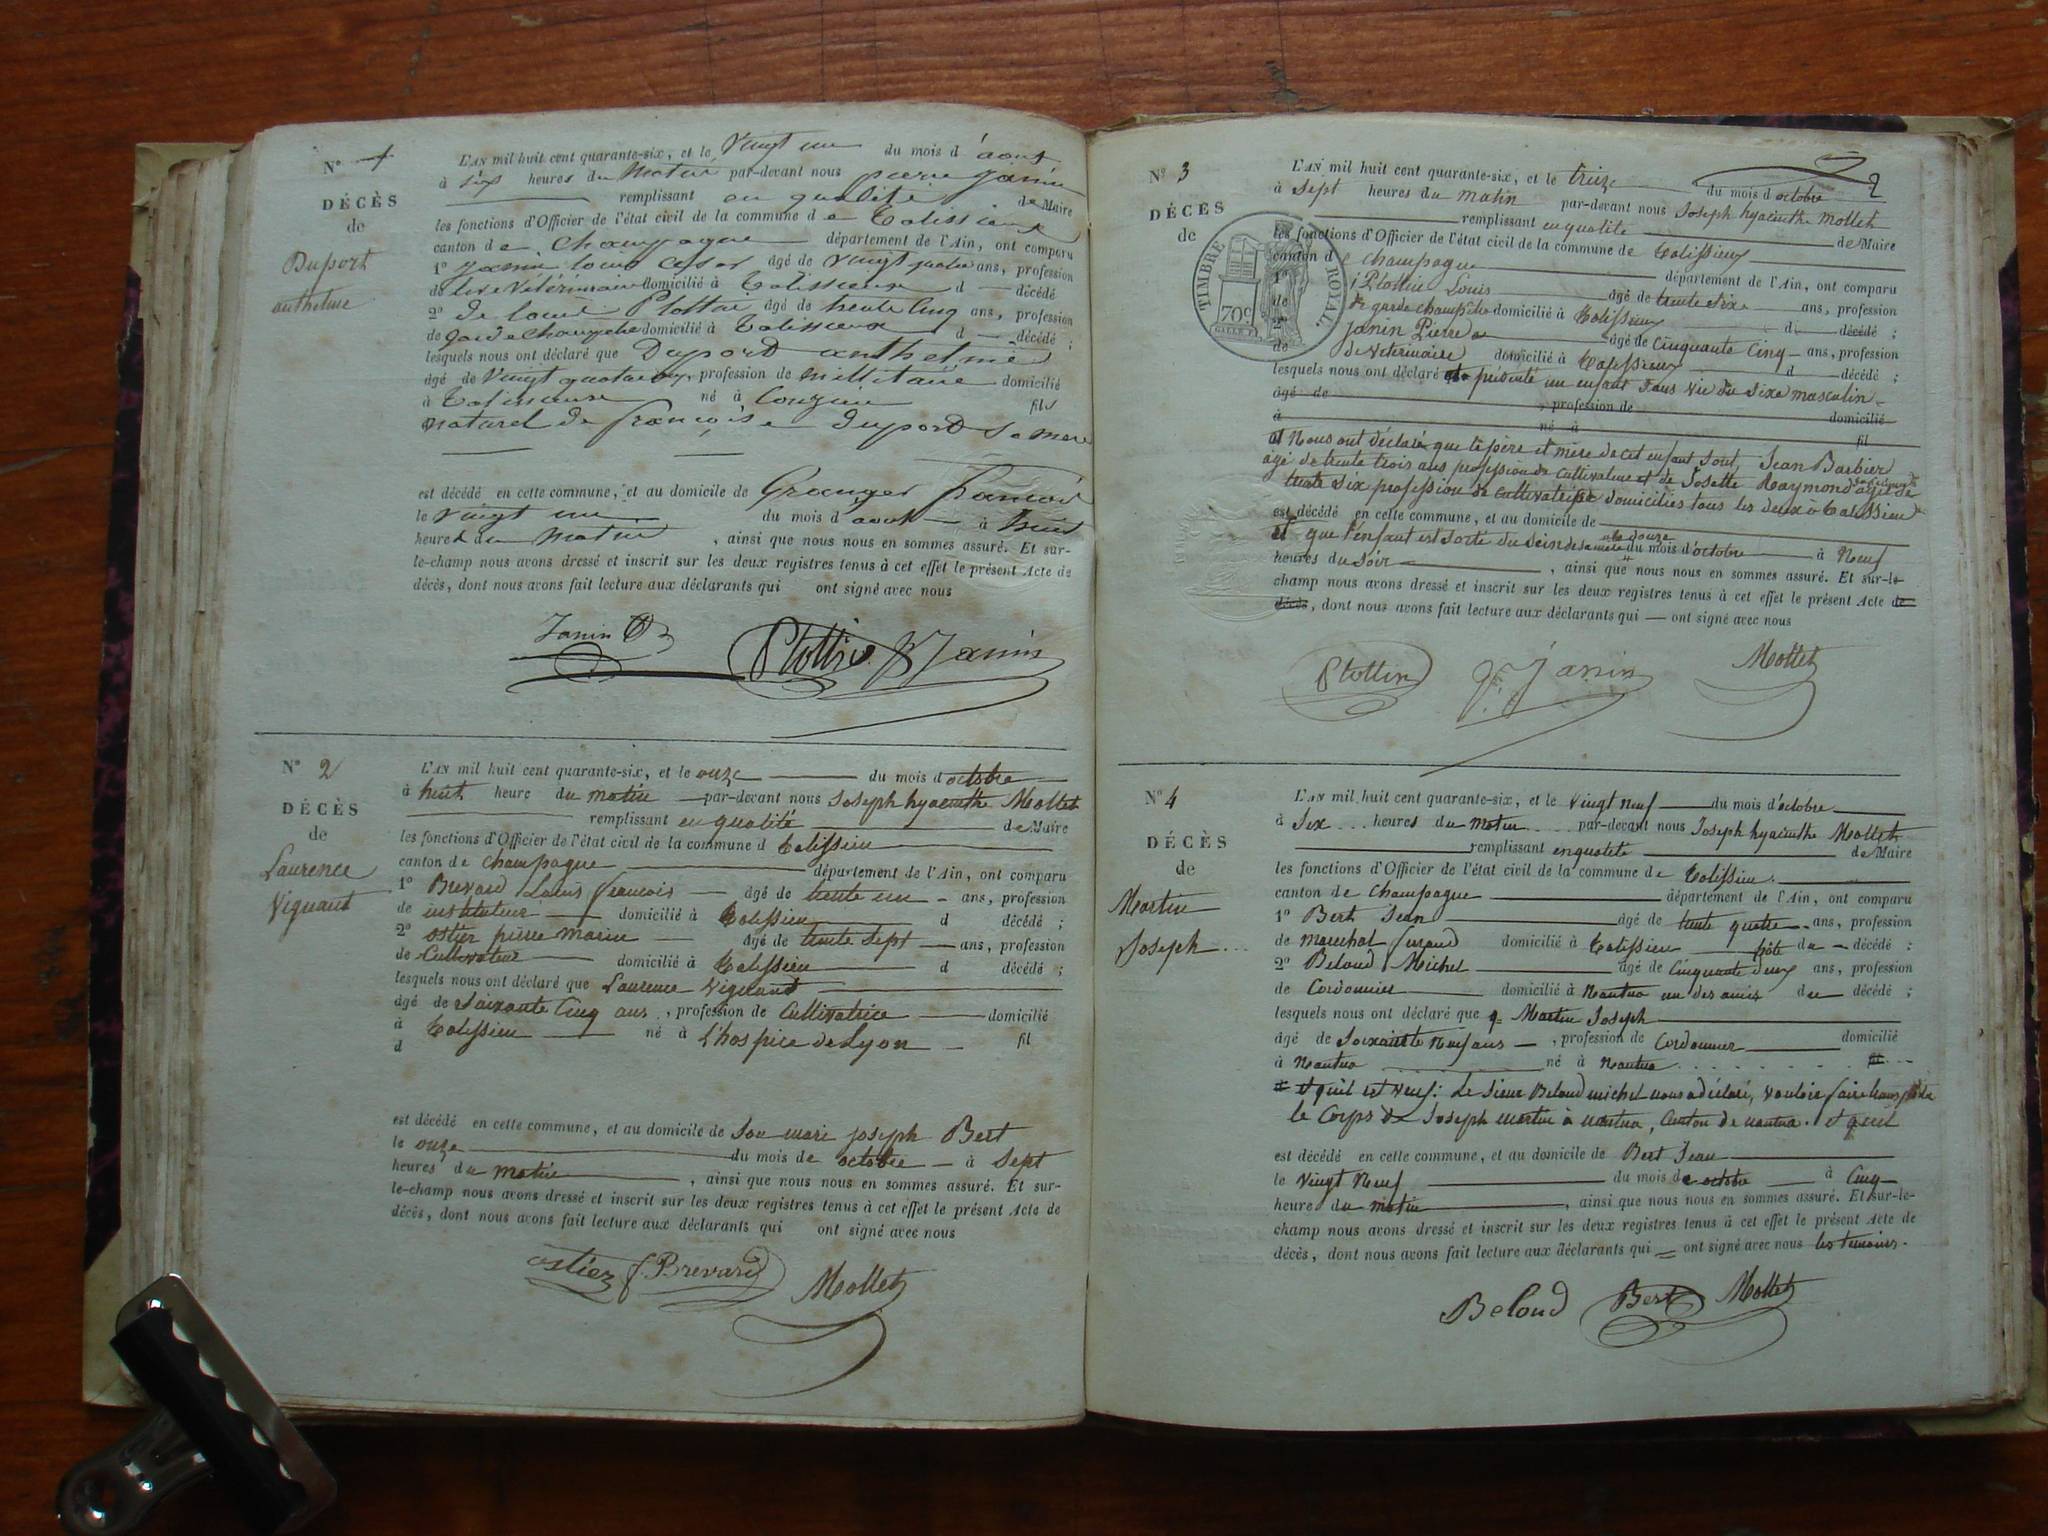 N° 1
DÉCÈS
de
Duport
anthelme
L'AN mil huit cent quarante-six, et le Vingt un du mois d'aout
à six heures du Matin par-devant nous pierre Janin
remplissant en qualité de Maire
les fonctions d'Officier de l'état civil de la commune de Talissieu
canton de Champagne département de l'Ain, ont comparu
1° Janin louis agé de Vingt quatre ans, profession
de Veterinaire domicilié à Talissieux d décédé
2° de louis Plottin agé de trente Cinq ans, profession
de garde Champetre domicilié à Talissieux d décédé ;
lesquels nous ont déclaré que Duport anthelme
âgé de Vingt quatre ans, profession de Millitaire domicilié
à Talissieux né à fils
naturel de francoise Duport Sa mere
est décédé en cette commune, et au domicile de Granger francois
le vingt un du mois d'aout à
heures du Matin , ainsi que nous nous en sommes assuré. Et sur-
le-champ nous avons dressé et inscrit sur les deux registres tenus à cet effet le présent Acte de
décès, dont nous avons fait lecture aux déclarants qui ont signé avec nous
Janin Plottin Janin
N° 2
DÉCÈS
de
Laurence
Viguant
L'AN mil huit cent quarante-six, et le onze du mois d'octobre
à huit heure du matin par-devant nous Joseph hyacinthe Mollet
remplissant en qualité de Maire
les fonctions d'Officier de l'état civil de la commune d Talissieu
canton de Champagne département de l'Ain, ont comparu
1° Brevard Louis francois agé de trente un ans, profession
de instituteur domicilié à Talissieu d décédé ;
2° ostier pierre marie âgé de trente Sept ans, profession
de Cultivateur domicilié à Talissieu d décédé ;
lesquels nous ont déclaré que Laurence Viguant
âgé de Soixante Cinq ans , profession de Cultivatrice domicilié
à Talissieu né à L'hospice de Lyon fil
d
est décédé en cette commune, et au domicile de Son mari joseph Bert
le onze du mois de octobre à Sept
heures du matin , ainsi que nous nous en sommes assuré. Et sur-
le-champ nous avons dressé et inscrit sur les deux registres tenus à cet effet le présent Acte de
décès, dont nous avons fait lecture aux déclarants qui ont signé avec nous
ostier Brevard Mollet
2
N° 3
DÉCÈS
de
TIMBRE ROYAL.
70c
L'AN mil huit cent quarante-six, et le treize du mois d'octobre
à Sept heures du matin par-devant nous Joseph hyacinthe Mollet
remplissant en qualité de Maire
les fonctions d'Officier de l'état civil de la commune de Talissieux
canton de Champagne département de l'Ain, ont comparu
1° Plottin Louis agé de trente Six ans, profession
de garde champêtre domicilié à Talissieux d décédé ;
2° Janin Pierre âgé de Cinquante Cinq ans, profession
de Veterinaire domicilié à Talissieux d décédé ;
lesquels nous ont déclaré présenté un enfant Sans vie du Sixe masculin
âgé de , profession de domicilié
à né à fil
et Nous ont déclaré que le père et mère de cet enfant Sont Jean Barbier
agé de trente trois ans profession de cultivateur et de Josette Raymond agée de
trente Six profession de cultivatrice domiciliés tous les deux à Talissieu
est décédé en cette commune, et au domicile de
et que l'enfant est sorti du Sein de sa mère le douze du mois d'octobre à Neuf
heures du Soir , ainsi que nous nous en sommes assuré. Et sur-le-
champ nous avons dressé et inscrit sur les deux registres tenus à cet effet le présent Acte de
décès, dont nous avons fait lecture aux déclarants qui ont signé avec nous
Plottin Janin Mollet
N° 4
DÉCÈS
de
Martin
Joseph
L'AN mil huit cent quarante-six, et le Vingt Neuf du mois d'octobre
à Six heures du matin par-devant nous Joseph hyacinthe Mollet
remplissant en qualité de Maire
les fonctions d'Officier de l'état civil de la commune de Talissieu
canton de Champagne département de l'Ain, ont comparu
1° Bert Jean âgé de trente quatre ans, profession
de marechal ferand domicilié à Talissieu hôte du décédé ;
2° Beloud Michel âgé de Cinquante deux ans, profession
de Cordonnier domicilié à Nantua un des amis du décédé ;
lesquels nous ont déclaré que Martin Joseph
âgé de Soixante Neuf ans , profession de Cordonnier domicilié
à Nantua né à Nantua fil
et qu'il est veuf: Le Sieur Beloud michel nous a déclaré, vouloir faire
le Corps de Joseph martin à nantua, Canton de nantua. et qu'il
est décédé en cette commune, et au domicile de Bert Jean
le Vingt Neuf du mois de octobre à Cinq
heure du matin , ainsi que nous nous en sommes assuré. Et sur-le-
champ nous avons dressé et inscrit sur les deux registres tenus à cet effet le présent Acte de
décès, dont nous avons fait lecture aux déclarants qui ont signé avec nous les temoins.
Beloud Bert Mollet